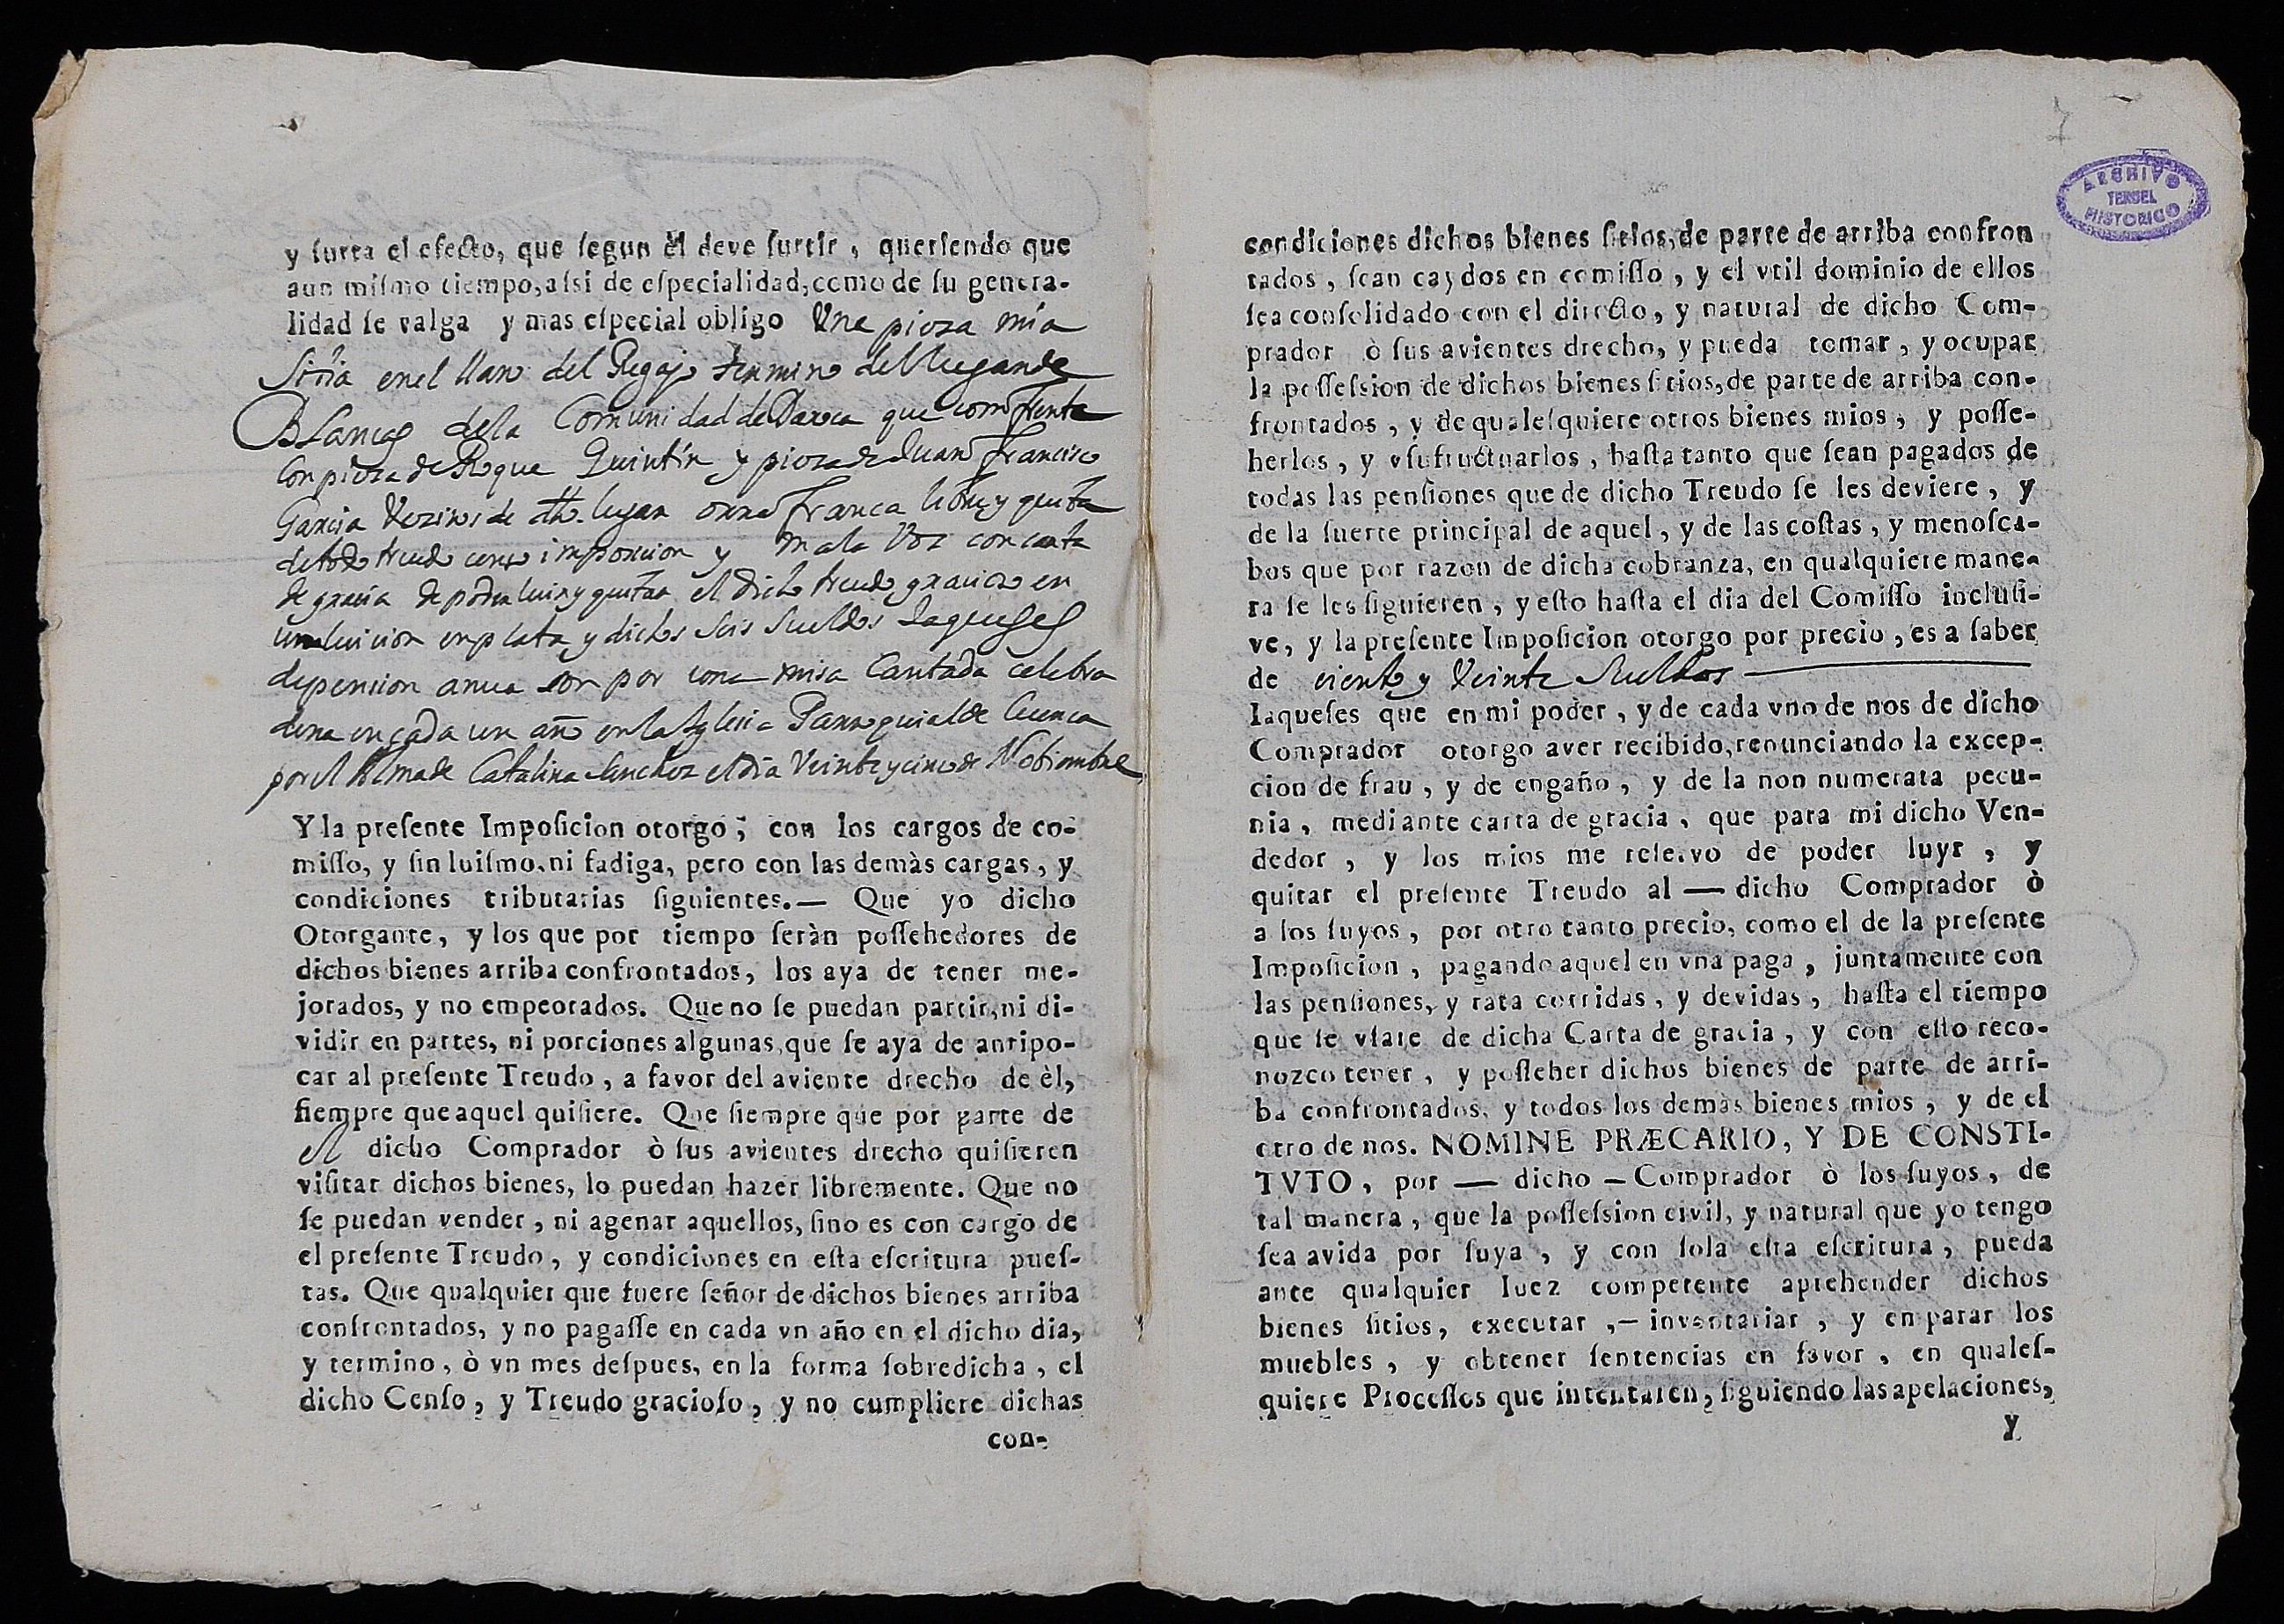 y surta el efecto, que segun èl deve surtir, queriendo que
aun mismo tiempo, assi de especialidad, como de su genera-
lidad se valga y mas especial obligo Una pieza mia
Sitia en el llano del Regajo termino del lugar de
Blancas de la Comunidad de Daroca que confrenta
con pieza de Roque Quintin y pieza de Juan Francisco
Garcia Vezinos de dho lugar franca libre y quita
de todo treudo censo imposicion y mala Voz con carta
de gracia de poder luir y quitar el dicho treudo gracioso en
una luicion en plata y dichos seis sueldos Jaqueses
de pension anua son por una misa Cantada celebra
dera en cada un año en la Iglesia Parroquial de Cuenca
por el Alma de Catalina Sanchez el dia Veinte y cinco de Nobiembre
Y la presente Imposicion otorgo; con los cargos de co-
misso, y sin luismo, ni fadiga, pero con las demàs cargas, y
condiciones tributarias siguientes.— Que yo dicho
Otorgante, y los que por tiempo seràn possehedores de
dichos bienes arriba confrontados, los aya de tener me-
jorados, y no empeorados. Que no se puedan partir, ni di-
vidir en partes, ni porciones algunas, que se aya de antipo-
car al presente Treudo, a favor del aviente drecho de èl,
siempre que aquel quisiere. Que siempre que por parte de
el dicho Comprador ò sus avientes drecho quisieren
visitar dichos bienes, lo puedan hazer libremente. Que no
se puedan vender, ni agenar aquellos, sino es con cargo de
el presente Treudo, y condiciones en esta escritura pues-
tas. Que qualquier que fuere señor de dichos bienes arriba
confrontados, y no pagasse en cada vn año en el dicho dia,
y termino, ò vn mes despues, en la forma sobredicha, el
dicho Censo, y Treudo gracioso, y no cumpliere dichas
con-
7
ARCHIVO
TERUEL
HISTORICO
condiciones dichos bienes sitios, de parte de arriba confron
tados, sean caydos en comisso, y el vtil dominio de ellos
sea consolidado con el directo, y natural de dicho Com-
prador ò sus avientes drecho, y pueda tomar, y ocupar
la possession de dichos bienes sitios, de parte de arriba con-
frontados, y de qualesquiere otros bienes mios, y posse-
herlos, y vsufructuarlos, hasta tanto que sean pagados de
todas las pensiones que de dicho Treudo se les deviere, y
de la suerte principal de aquel, y de las costas, y menosca-
bos que por razon de dicha cobranza, en qualquiere mane-
ra se les siguieren, y esto hasta el dia del Comisso inclusi-
ve, y la presente Imposicion otorgo por precio, es a saber
de ciento y Veinte Sueldos
Iaqueses que en mi poder, y de cada vno de nos de dicho
Comprador otorgo aver recibido, renunciando la excep-
cion de frau, y de engaño, y de la non numerata pecu-
nia, mediante carta de gracia, que para mi dicho Ven-
dedor, y los mios me reservo de poder luyr, y
quitar el presente Treudo al — dicho Comprador ò
a los suyos, por otro tanto precio, como el de la presente
Imposicion, pagando aquel en vna paga, juntamente con
las pensiones, y rata corridas, y devidas, hasta el tiempo
que se vsare de dicha Carta de gracia, y con esto reco-
nozco tener, y posseher dichos bienes de parte de arri-
ba confrontados, y todos los demàs bienes mios, y de el
otro de nos. NOMINE PRÆCARIO, Y DE CONSTI-
TVTO, por — dicho — Comprador ò los suyos, de
tal manera, que la possession civil, y natural que yo tengo
sea avida por suya, y con sola esta escritura, pueda
ante qualquier Iuez competente aprehender dichos
bienes sitios, executar,— inventariar, y emparar los
muebles, y obtener sentencias en favor, en quales-
quiere Processos que intentaren, siguiendo las apelaciones,
y